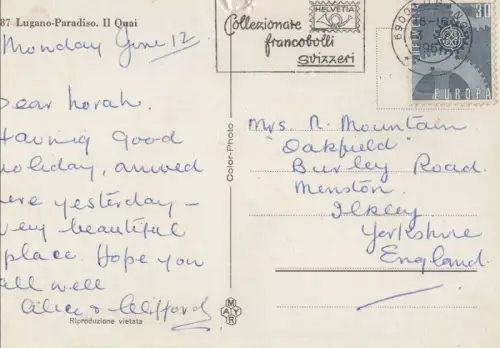 87 Lugano-Paradiso. Il Quai
Monday June 12
ear Norah.
Having Good
holiday, arrived
ere yesterday -
very beautiful
place. Hope you
all well
Alice & Clifford
Riproduzione vietata
Color-Photo
MAYR
HELVETIA
Collezionate
francobolli
svizzeri
6900
30
EUROPA
Mrs. N. Mountain
"Oakfield"
Burley Road.
Menston.
Ilkley
Yorkshire
England.